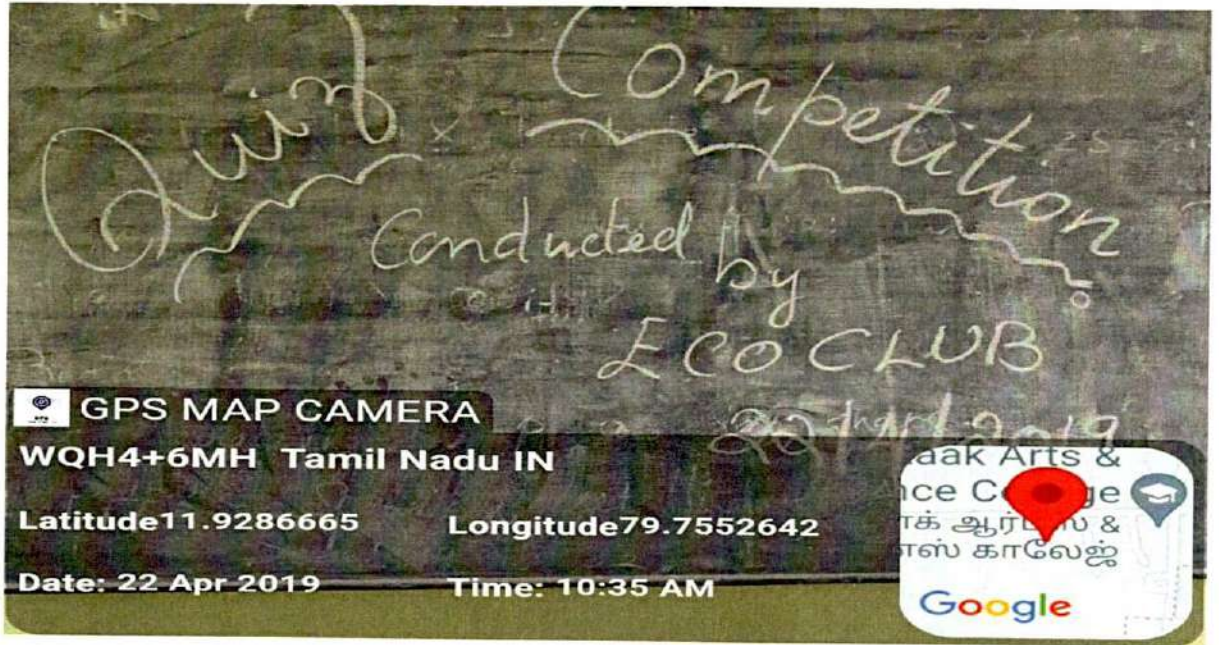 Quiz Competition
Conducted by
ECO CLUB
22/4/2019
GPS MAP CAMERA
WQH4+6MH Tamil Nadu IN
Latitude11.9286665 Longitude79.7552642
Date: 22 Apr 2019 Time: 10:35 AM
aak Arts &
nce C ge
ாக் ஆர்ட்ஸ் &
ன்ஸ் காலேஜ்
Google